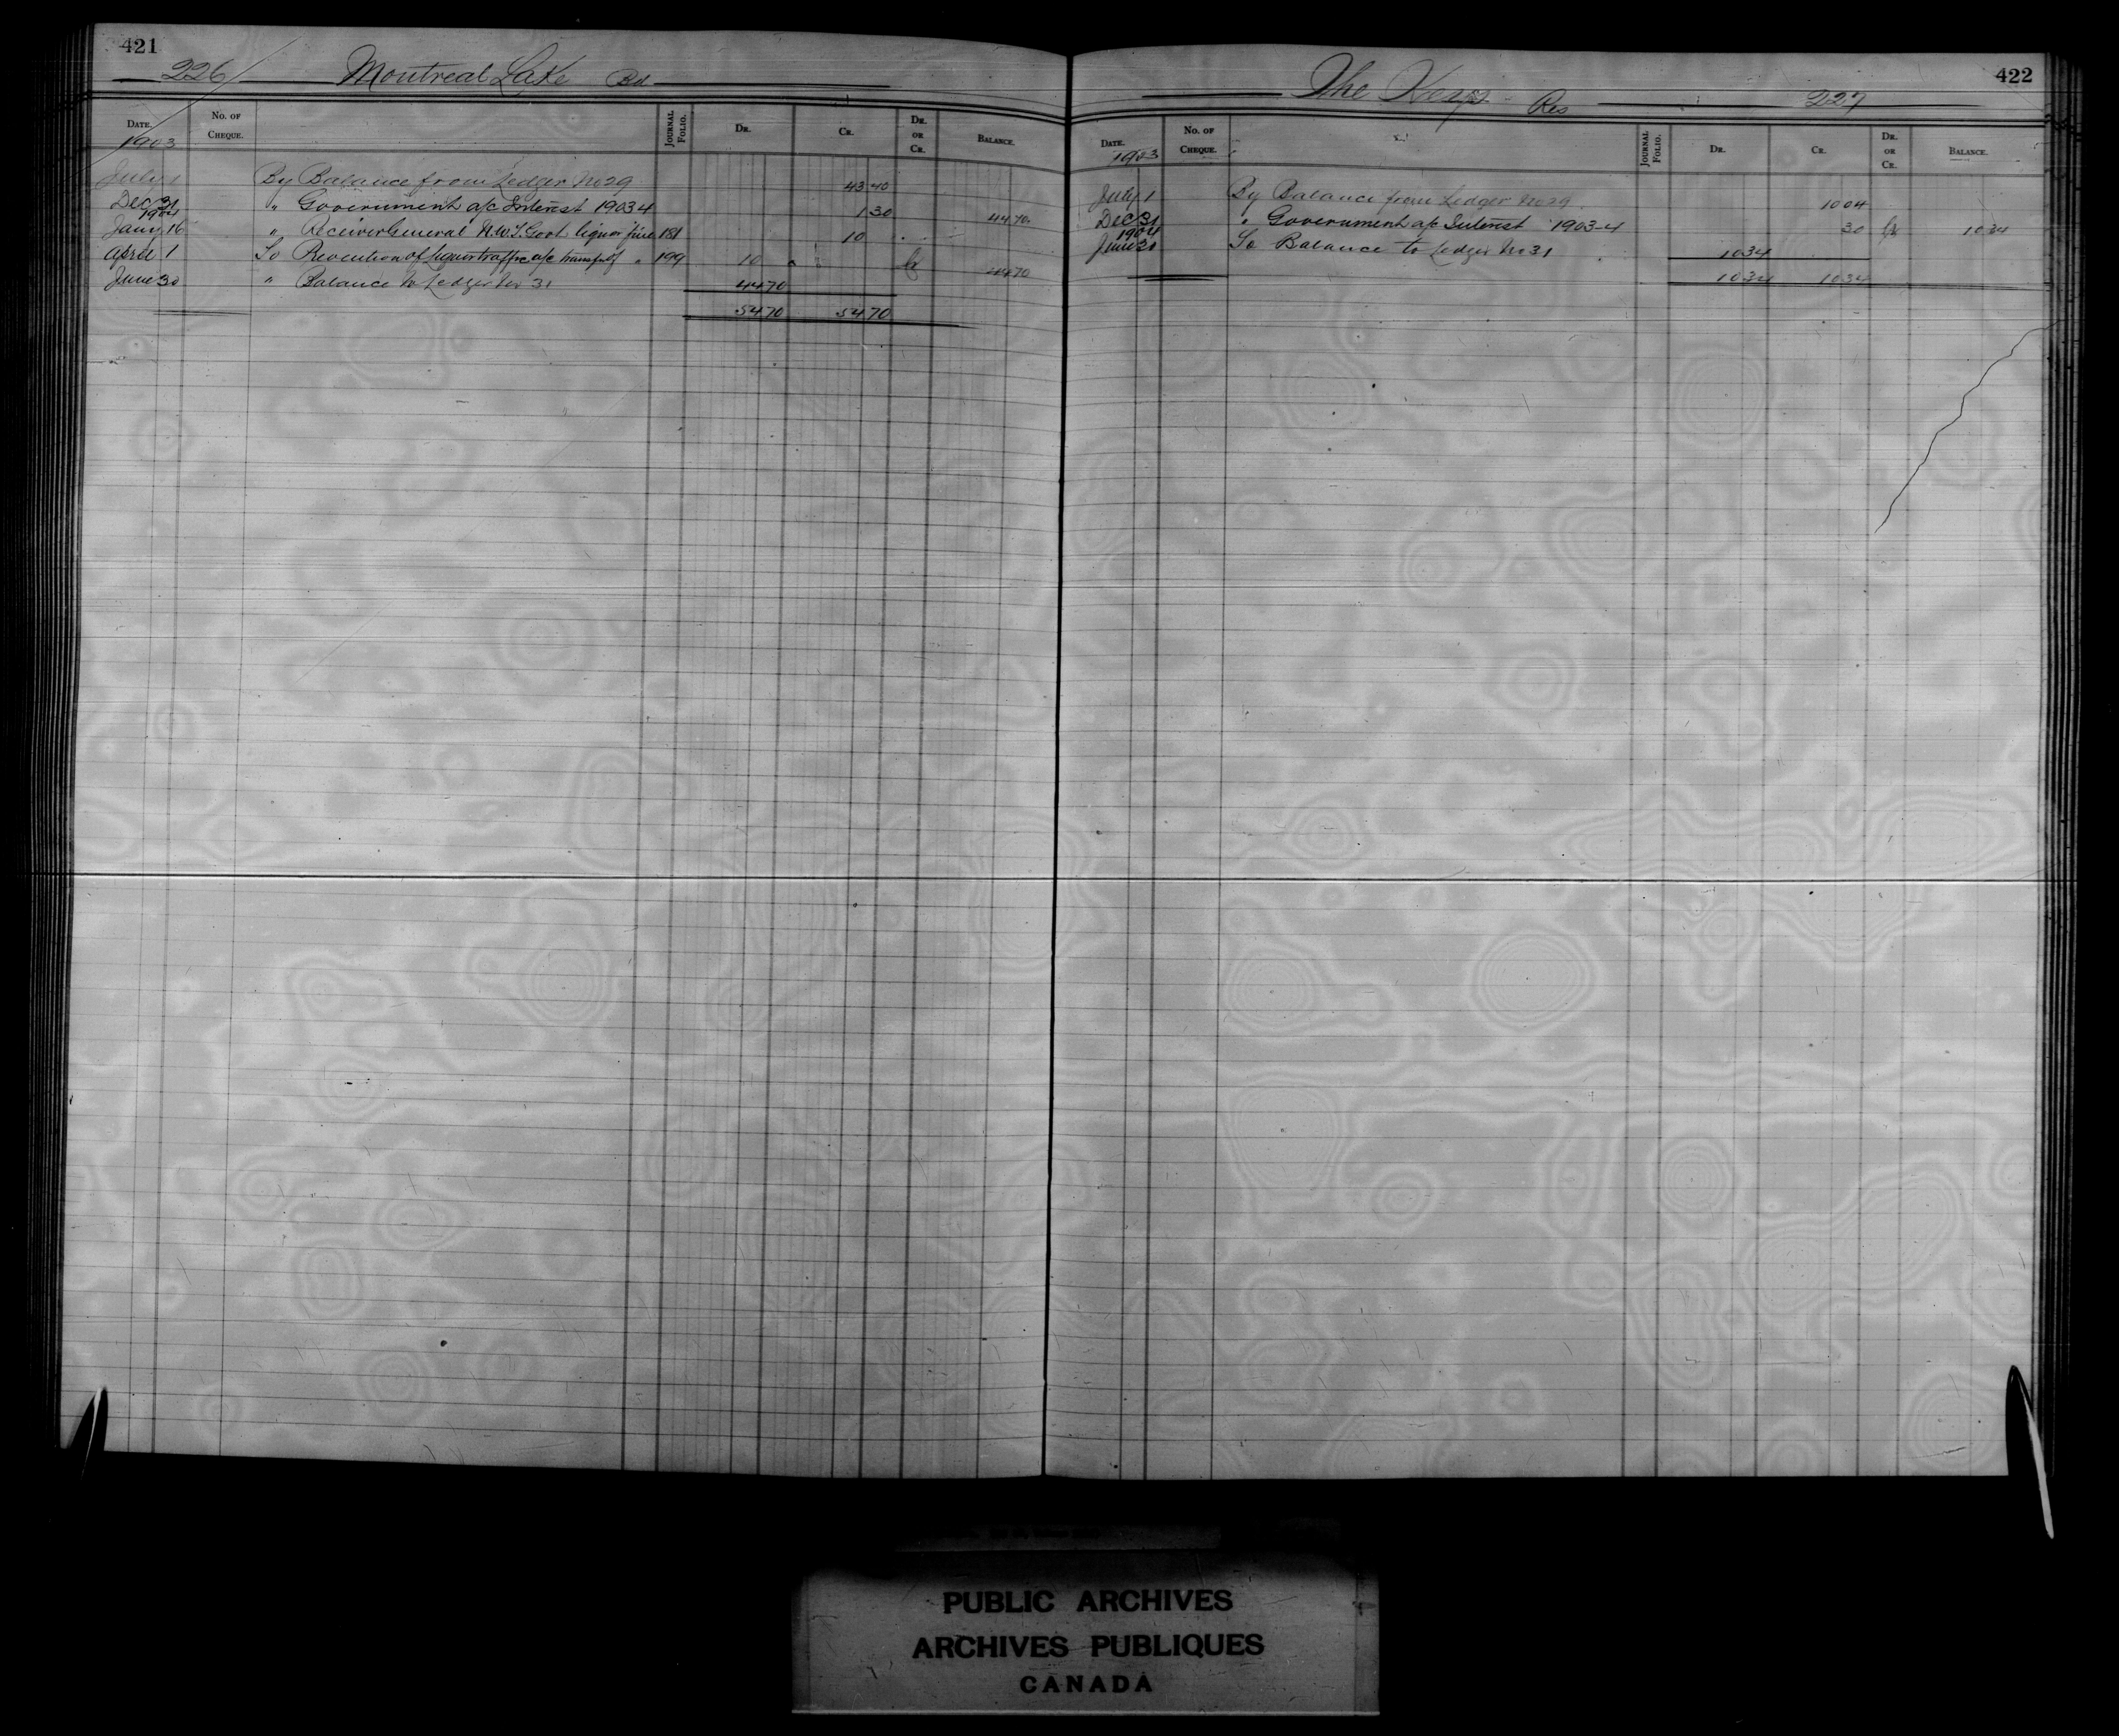 421
226 Montreal Lake Bd
DATE. No. of Cheque. Journal Folio. Dr. Cr. Dr. or Cr. Balance.
1903
July 1 By Balance from Ledger No 29 43 40
Dec 31 " Government a/c Interest 1903 4 1 30 44 70
1904
Jany 16 " Receiver General N.W.T. Govt. liquor fine 181 10
April 1 To Prevention of liquor traffic a/c transp of " 199 10 Cr 44 70
June 30 " Balance to Ledger No 31 44 70
54 70 54 70
422
The Keys Res 227
Date. No. of Cheque. Journal Folio. Dr. Cr. Dr. or Cr. Balance.
1903
July 1 By Balance from Ledger No 29 10 04
Dec 31 " Government a/c Interest 1903-4 30 Cr 10 34
1904
June 30 To Balance to Ledger No 31 10 34
10 34 10 34
PUBLIC ARCHIVES
ARCHIVES PUBLIQUES
CANADA